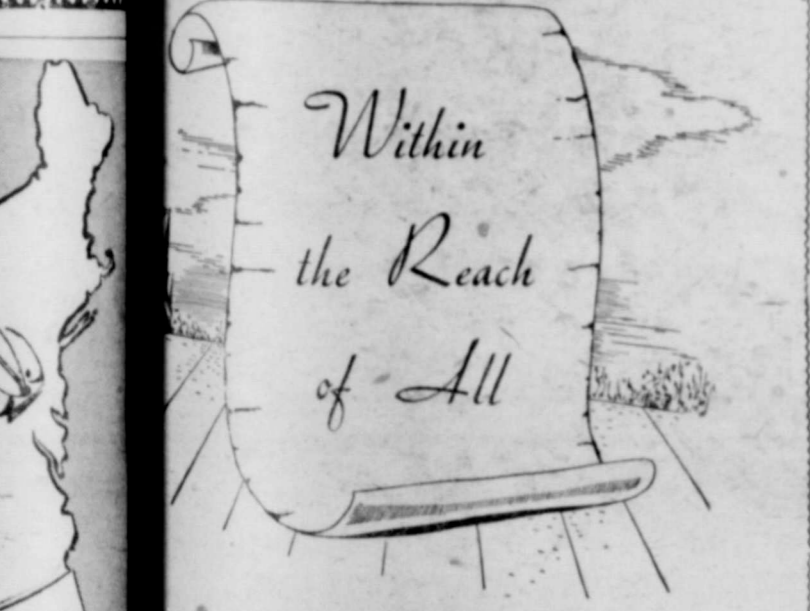 Within
the Reach
of All